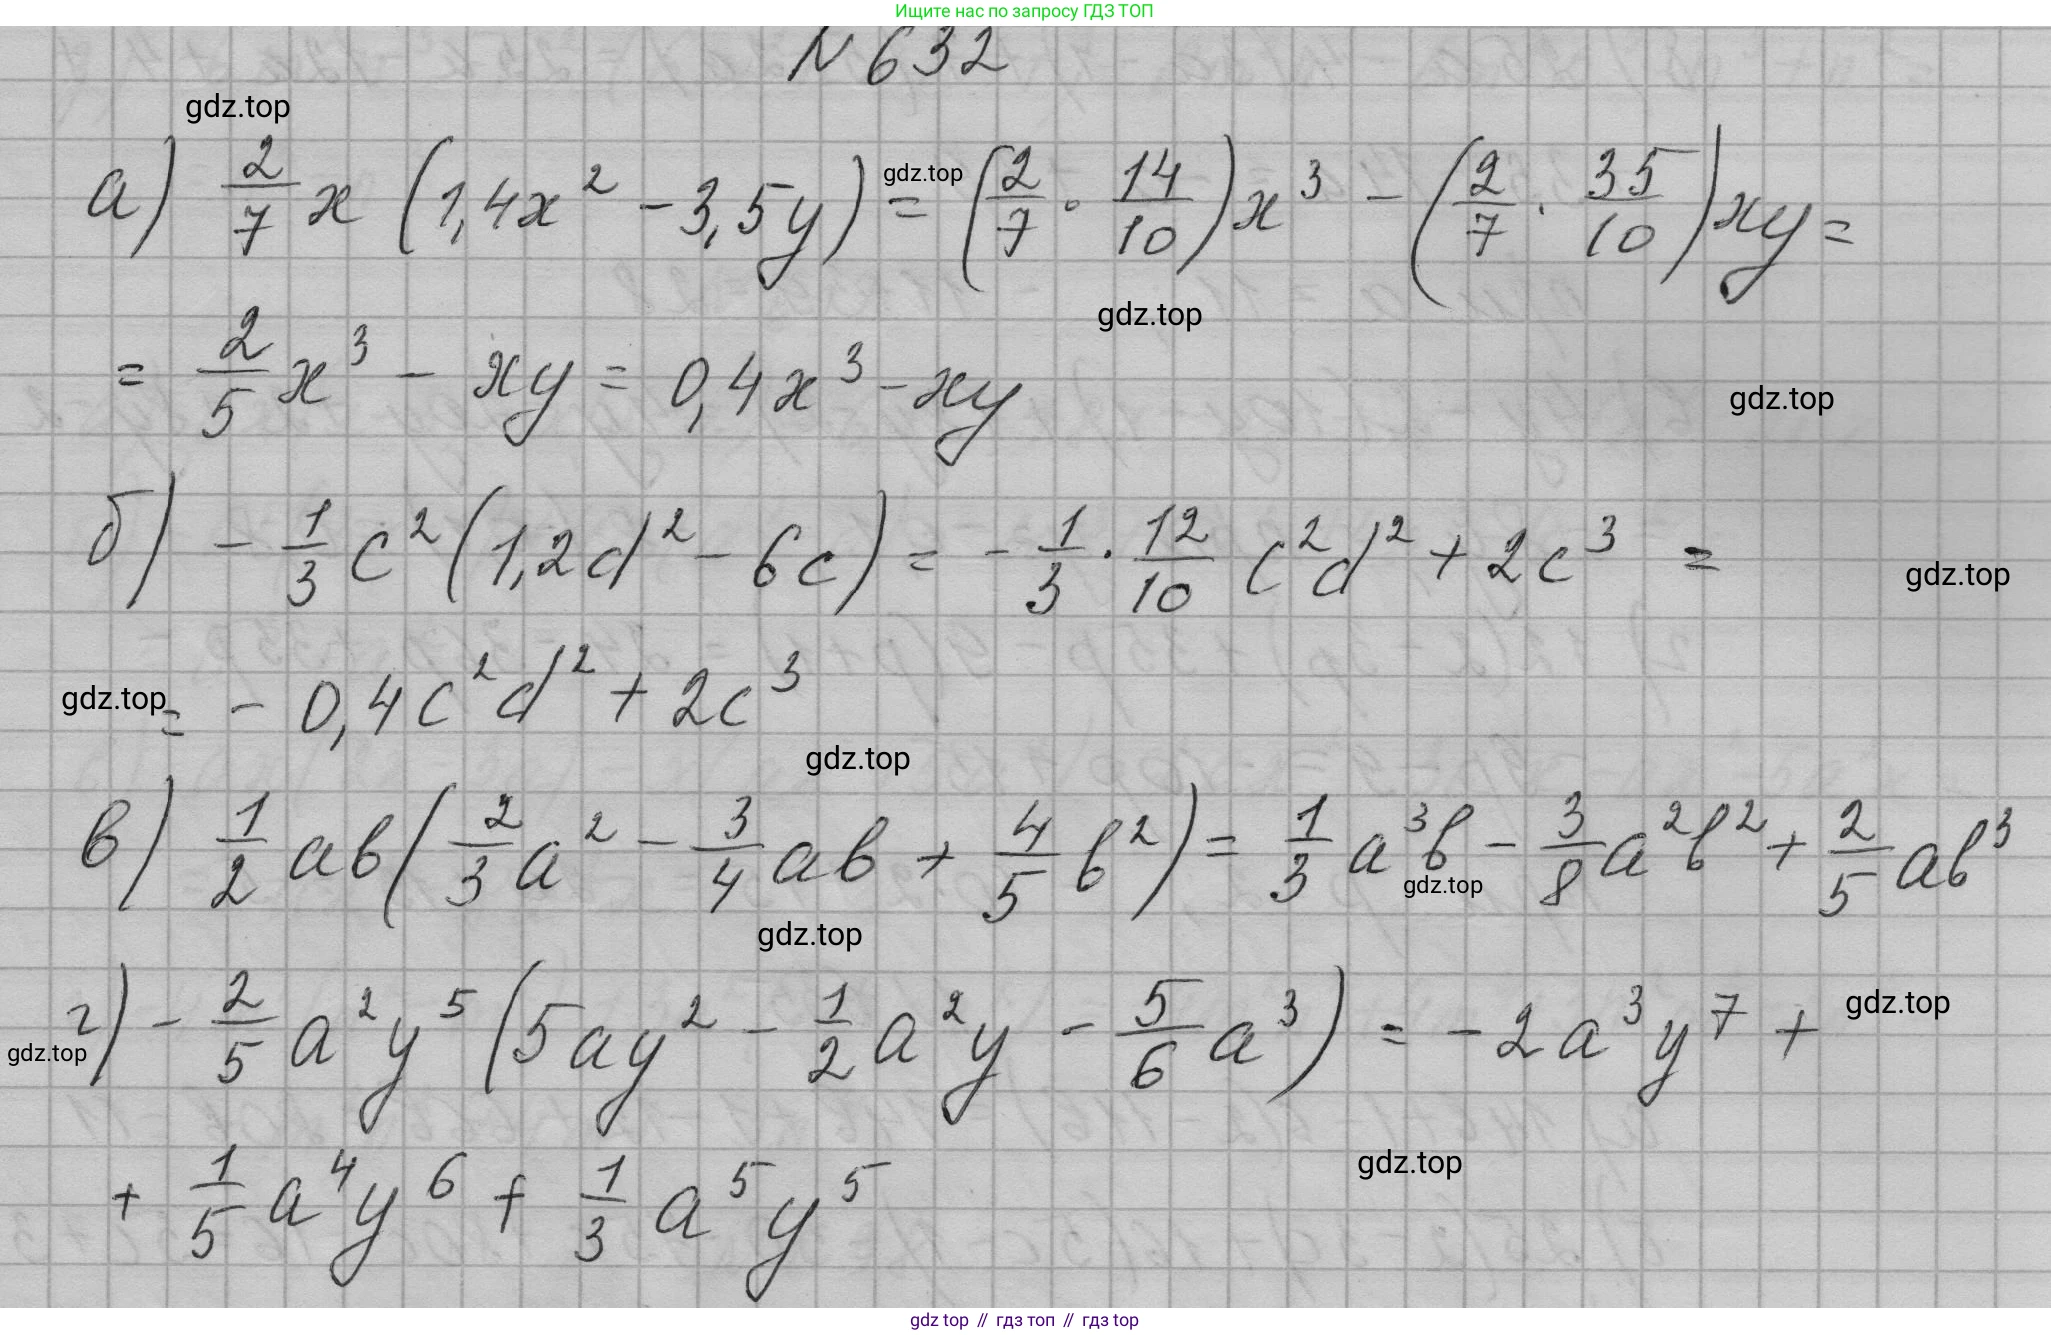 Ищите нас по запросу ГДЗ ТОП
N 632
gdz.top
а) 2/7 x (1,4x² - 3,5y) = (2/7 · 14/10)x³ - (2/7 · 35/10)xy =
gdz.top
gdz.top
= 2/5 x³ - xy = 0,4x³ - xy
gdz.top
б) - 1/3 c² (1,2d² - 6c) = - 1/3 · 12/10 c²d² + 2c³ =
gdz.top
gdz.top
= - 0,4c²d² + 2c³
gdz.top
в) 1/2 ab(2/3 a² - 3/4 ab + 4/5 b²) = 1/3 a³b - 3/8 a²b² + 2/5 ab³
gdz.top
gdz.top
г) - 2/5 a²y⁵ (5ay² - 1/2 a²y - 5/6 a³) = - 2a³y⁷ +
gdz.top
gdz.top
+ 1/5 a⁴y⁶ + 1/3 a⁵y⁵
gdz.top
gdz top // гдз топ // гдз top